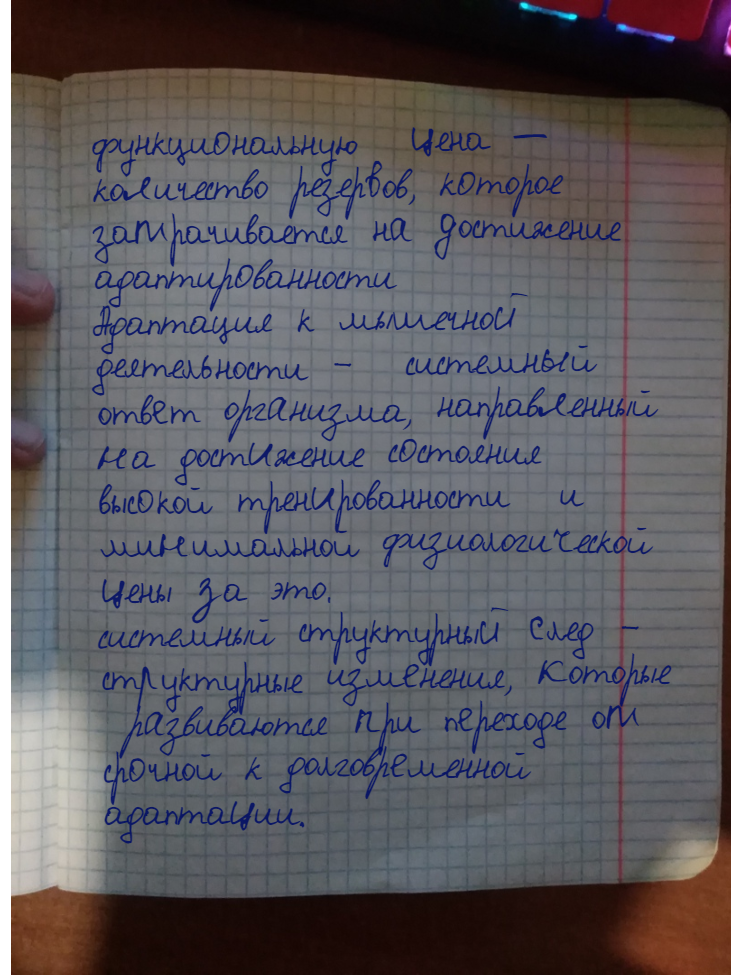 функциональную цена —
количество резервов, которое
затрачивается на достижение
адаптированности
Адаптация к мышечной
деятельности – системный
ответ организма, направленный
на достижение состояния
высокой тренированности и
минимальной физиологической
цены за это.
системный структурный след –
структурные изменения, которые
развиваются при переходе от
срочной к долговременной
адаптации.